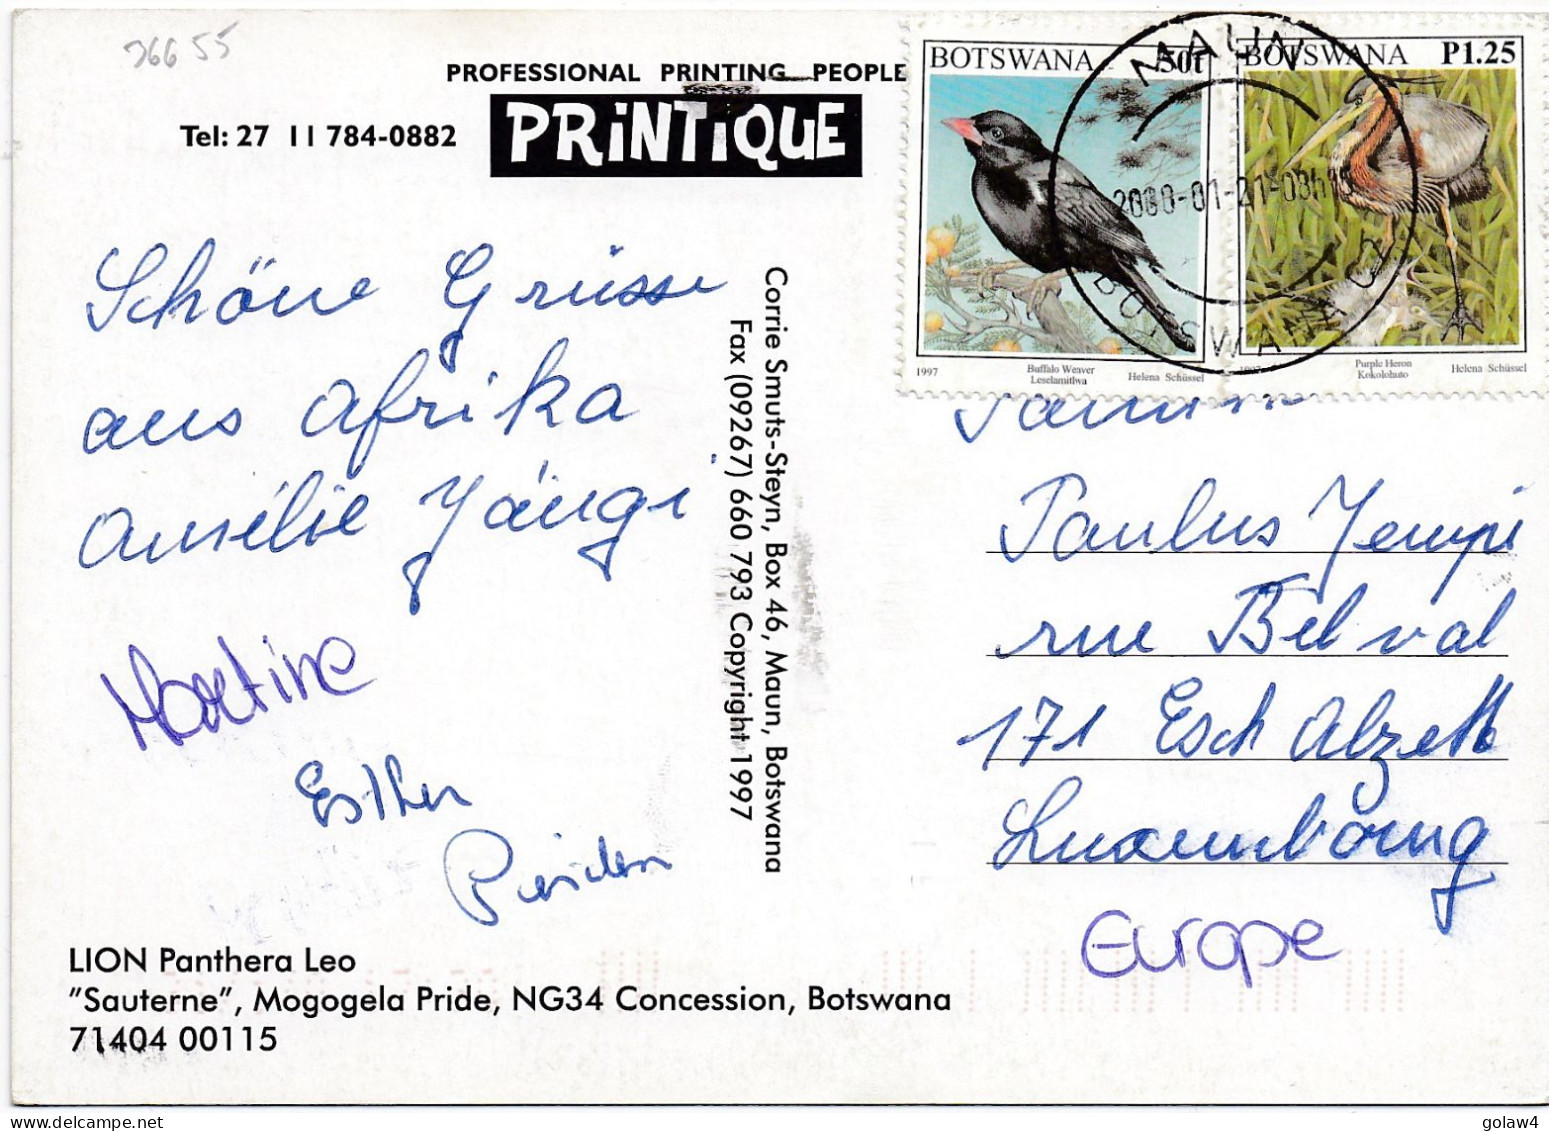 36655
PROFESSIONAL PRINTING PEOPLE
PRiNTiQUE
Tel: 27 11 784-0882
Schöne Grüsse
aus Afrika
Amélie Jängi
Martine
Esther
LION Panthera Leo
"Sauterne", Mogogela Pride, NG34 Concession, Botswana
71404 00115
Corrie Smuts-Steyn, Box 46, Maun, Botswana
Fax (09267) 660 793 Copyright 1997
BOTSWANA 50t
1997 Buffalo Weaver Helena Schüssel
Leselamitlwa
BOTSWANA P1.25
1997 Purple Heron Helena Schüssel
Kokolohuto
MAUN
2000-01-21-08h
BOTSWANA
Paulus Jempi
rue Belval
171 Esch Alzette
Luxembourg
Europe
golaw4